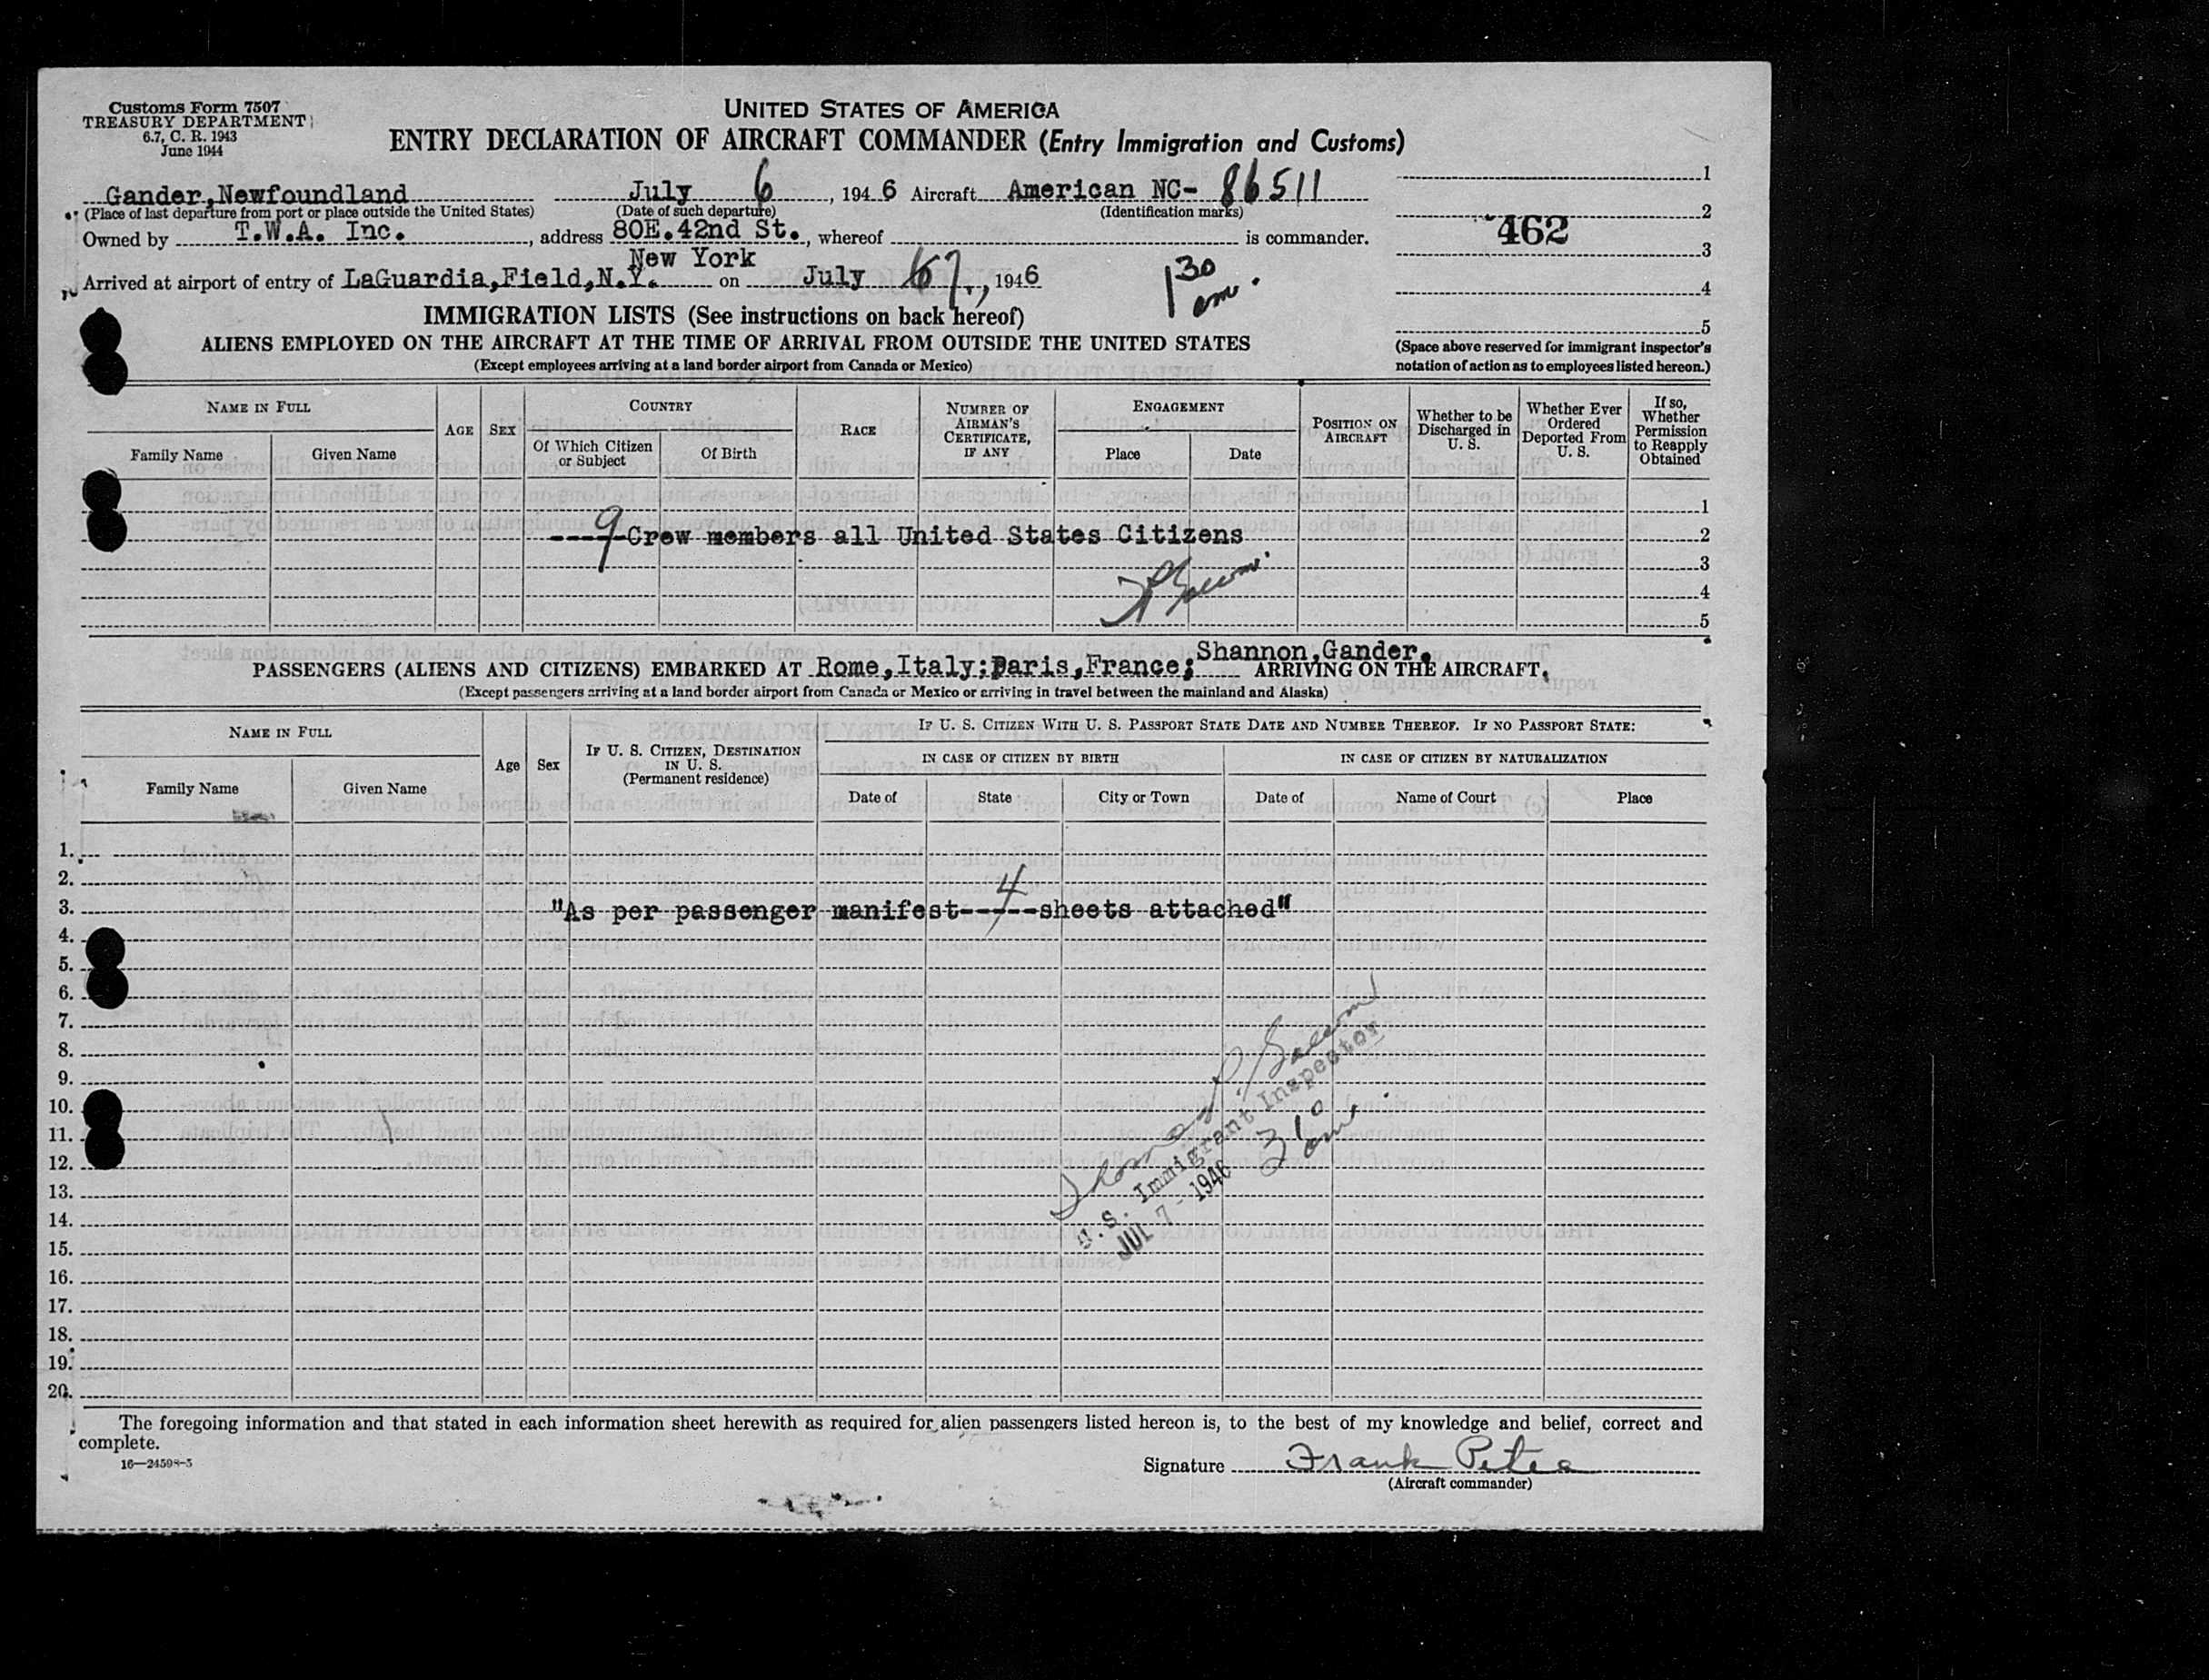 Customs Form 7507
TREASURY DEPARTMENT
6.7, C. R. 1943
June 1944
UNITED STATES OF AMERICA
ENTRY DECLARATION OF AIRCRAFT COMMANDER (Entry Immigration and Customs)
Gander,Newfoundland July 6, 1946 Aircraft American NC- 86511
(Place of last departure from port or place outside the United States) (Date of such departure) (Identification marks)
Owned by T.W.A. Inc., address 80E.42nd St., whereof is commander.
New York
Arrived at airport of entry of LaGuardia,Field,N.Y. on July 67., 1946
1 30 am.
1
2
462
3
4
5
(Space above reserved for immigrant inspector's
notation of action as to employees listed hereon.)
IMMIGRATION LISTS (See instructions on back hereof)
ALIENS EMPLOYED ON THE AIRCRAFT AT THE TIME OF ARRIVAL FROM OUTSIDE THE UNITED STATES
(Except employees arriving at a land border airport from Canada or Mexico)
NAME IN FULL
Family Name
Given Name
AGE
SEX
COUNTRY
Of Which Citizen
or Subject
Of Birth
RACE
NUMBER OF
AIRMAN'S
CERTIFICATE,
IF ANY
ENGAGEMENT
Place
Date
POSITION ON
AIRCRAFT
Whether to be
Discharged in
U. S.
Whether Ever
Ordered
Deported From
U. S.
If so,
Whether
Permission
to Reapply
Obtained
1
----9-Crew members all United States Citizens 2
3
4
5
Shannon,Gander.
PASSENGERS (ALIENS AND CITIZENS) EMBARKED AT Rome,Italy;Paris,France; ARRIVING ON THE AIRCRAFT.
(Except passengers arriving at a land border airport from Canada or Mexico or arriving in travel between the mainland and Alaska)
NAME IN FULL
Family Name
Given Name
Age
Sex
IF U. S. CITIZEN, DESTINATION
IN U. S.
(Permanent residence)
IF U. S. CITIZEN WITH U. S. PASSPORT STATE DATE AND NUMBER THEREOF. IF NO PASSPORT STATE:
IN CASE OF CITIZEN BY BIRTH
Date of
State
City or Town
IN CASE OF CITIZEN BY NATURALIZATION
Date of
Name of Court
Place
1.
2.
3. "As per passenger manifest--4--sheets attached"
4.
5.
6.
7.
8.
9.
10.
11.
12.
13.
14.
15.
16.
17.
18.
19.
20.
Thomas P.
U. S. Immigrant Inspector
JUL 7 - 1946
3 10 am.
The foregoing information and that stated in each information sheet herewith as required for alien passengers listed hereon is, to the best of my knowledge and belief, correct and
complete.
16—24598-3
Signature Frank
(Aircraft commander)